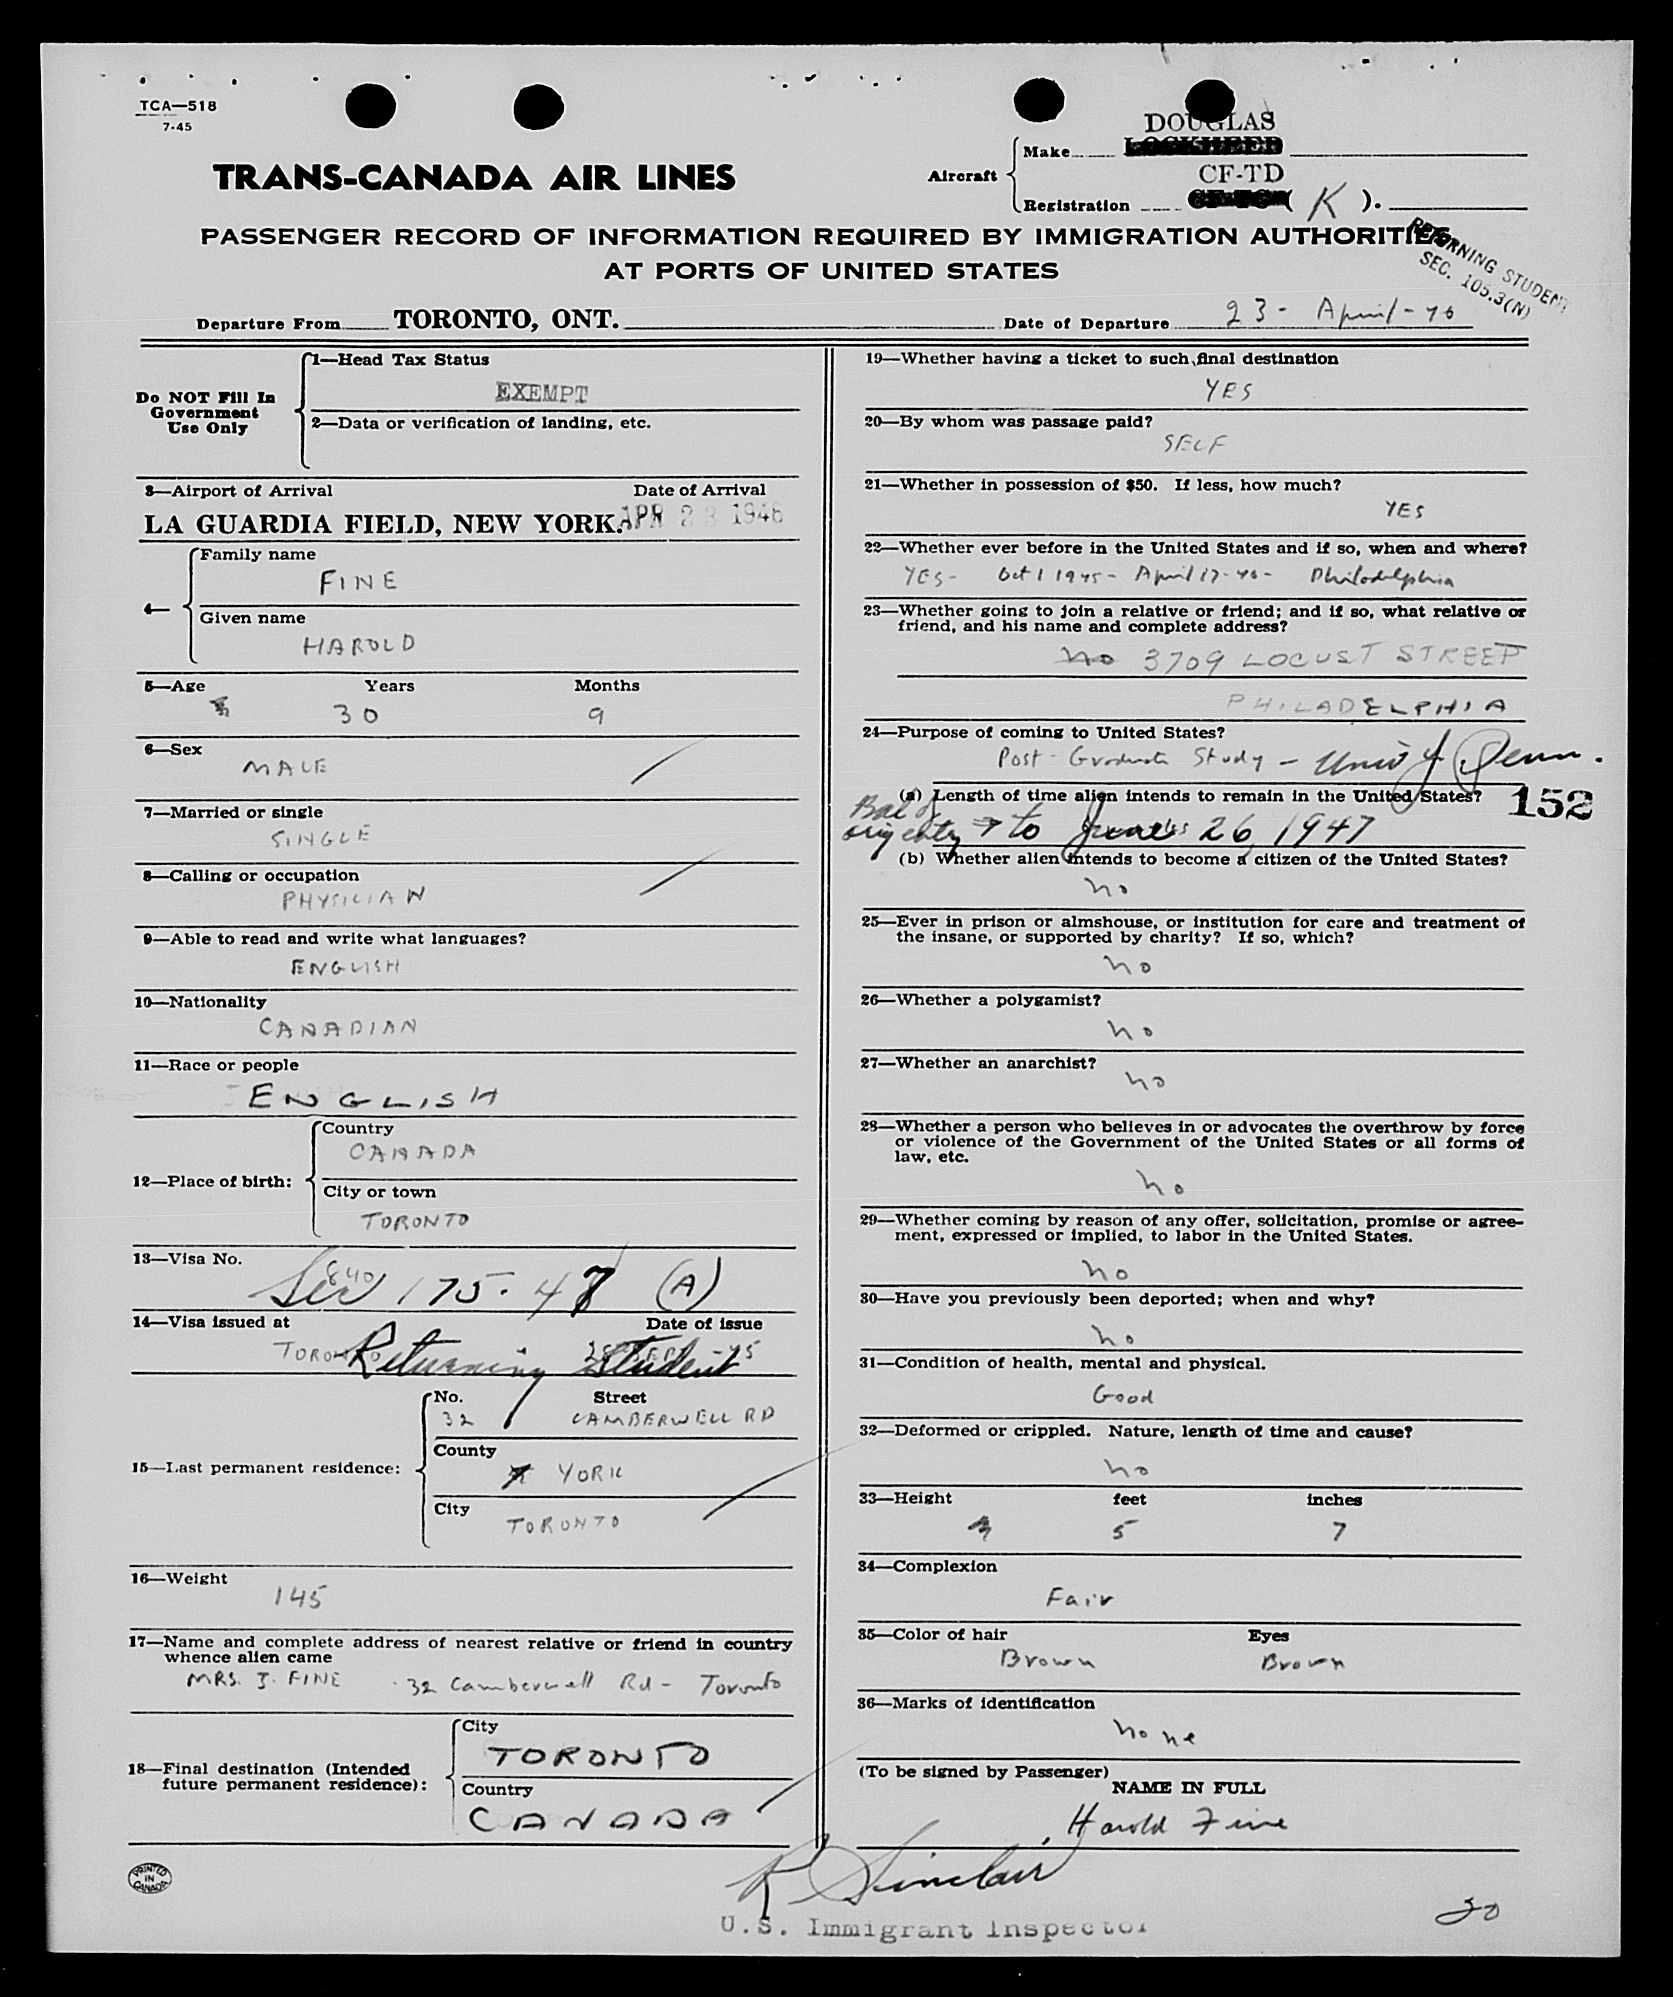 TCA—518
7-45
TRANS-CANADA AIR LINES
Aircraft
Make
DOUGLAS
LOCKHEED
CF-TD
Registration ( K ).
PASSENGER RECORD OF INFORMATION REQUIRED BY IMMIGRATION AUTHORITIES
AT PORTS OF UNITED STATES
RETURNING STUDENT
SEC. 105.3(N)
Departure From TORONTO, ONT.
Date of Departure 23 - April - 46
Do NOT Fill In
Government
Use Only
1—Head Tax Status
EXEMPT
2—Data or verification of landing, etc.
3—Airport of Arrival Date of Arrival
LA GUARDIA FIELD, NEW YORK. APR 23 1946
4—
Family name
FINE
Given name
HAROLD
5—Age Years Months
30 9
6—Sex
MALE
7—Married or single
SINGLE
8—Calling or occupation
PHYSICIAN
9—Able to read and write what languages?
ENGLISH
10—Nationality
CANADIAN
11—Race or people
ENGLISH
12—Place of birth:
Country
CANADA
City or town
TORONTO
13—Visa No.
840
Sec 175.47 (A)
14—Visa issued at Date of issue
TORONTO 28 SEPT -45
Returning Student
15—Last permanent residence:
No. Street
32 CAMBERWELL RD
County
YORK
City
TORONTO
16—Weight
145
17—Name and complete address of nearest relative or friend in country
whence alien came
MRS. I. FINE 32 Camberwell Rd - Toronto
18—Final destination (Intended
future permanent residence):
City
TORONTO
Country
CANADA
19—Whether having a ticket to such final destination
YES
20—By whom was passage paid?
SELF
21—Whether in possession of $50. If less, how much?
YES
22—Whether ever before in the United States and if so, when and where?
YES - Oct 1 1945 - April 17-46 - Philadelphia
23—Whether going to join a relative or friend; and if so, what relative or
friend, and his name and complete address?
no 3709 LOCUST STREET
PHILADELPHIA
24—Purpose of coming to United States?
Post-Graduate Study - Univ of Penn.
(a) Length of time alien intends to remain in the United States?
152
Bal of
orig entry → to June 26, 1947
(b) Whether alien intends to become a citizen of the United States?
no
25—Ever in prison or almshouse, or institution for care and treatment of
the insane, or supported by charity? If so, which?
no
26—Whether a polygamist?
no
27—Whether an anarchist?
no
28—Whether a person who believes in or advocates the overthrow by force
or violence of the Government of the United States or all forms of
law, etc.
no
29—Whether coming by reason of any offer, solicitation, promise or agree-
ment, expressed or implied, to labor in the United States.
no
30—Have you previously been deported; when and why?
no
31—Condition of health, mental and physical.
Good
32—Deformed or crippled. Nature, length of time and cause?
no
33—Height feet inches
5 7
34—Complexion
Fair
35—Color of hair Eyes
Brown Brown
36—Marks of identification
none
(To be signed by Passenger)
NAME IN FULL
Harold Fine
R Sinclair
U.S. Immigrant Inspector
PRINTED
IN
CANADA
20